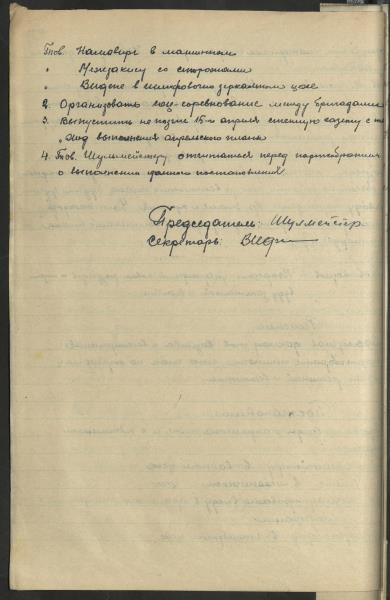 Тов. Намовиру в машинном
" Межзакису со сторожами
" Видоне в шлифовочно зеркальном цехе
2. Организовать соц-соревнование между бригадами
3. Выпустить не позже 15-го апреля стенную газету
"Ход выполнения апрельского плана
4. Тов. Шульмейстеру, отчитаться перед партсобранием
о выполнении данного постановления
Председатель: Шулмейстер
Секретарь: